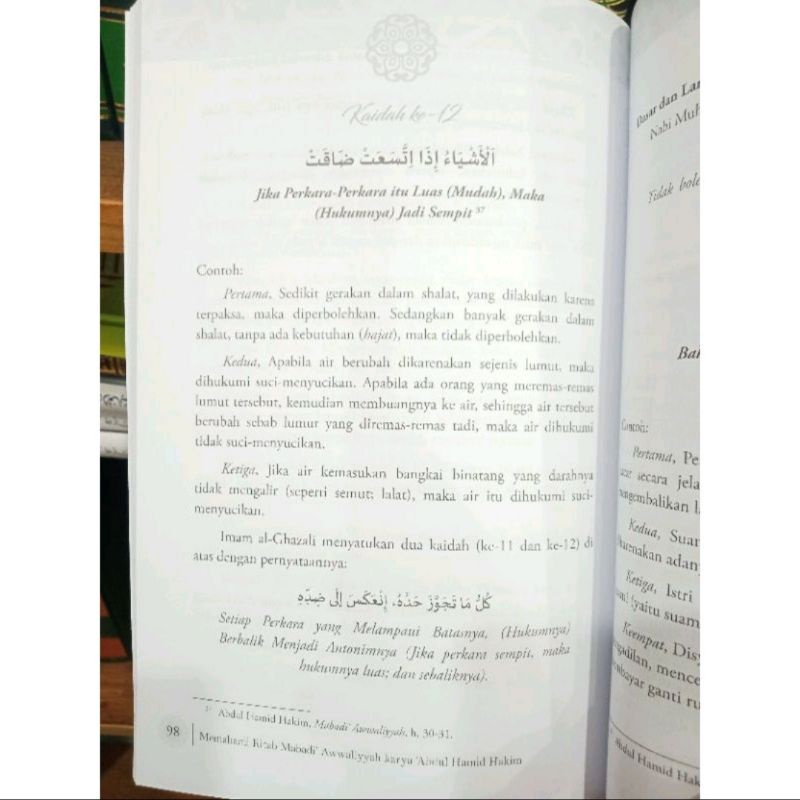 Kaidah ke-12
اَلْأَشْيَاءُ إِذَا اِتَّسَعَتْ ضَاقَتْ
Jika Perkara-Perkara itu Luas (Mudah), Maka
(Hukumnya) Jadi Sempit 37
Contoh:
Pertama, Sedikit gerakan dalam shalat, yang dilakukan karena
terpaksa, maka diperbolehkan. Sedangkan banyak gerakan dalam
shalat, tanpa ada kebutuhan (hajat), maka tidak diperbolehkan.
Kedua, Apabila air berubah dikarenakan sejenis lumut, maka
dihukumi suci-menyucikan. Apabila ada orang yang meremas-remas
lumut tersebut, kemudian membuangnya ke air, sehingga air tersebut
berubah sebab lumur yang diremas-remas tadi, maka air dihukumi
tidak suci-menyucikan.
Ketiga, Jika air kemasukan bangkai binatang yang darahnya
tidak mengalir (seperti semut; lalat), maka air itu dihukumi suci-
menyucikan.
Imam al-Ghazali menyatukan dua kaidah (ke-11 dan ke-12) di
atas dengan pernyataannya:
كُلُّ مَا تَجَوَّزَ حَدُّهُ، اِنْعَكَسَ اِلَى ضِدِّهِ
Setiap Perkara yang Melampaui Batasnya, (Hukumnya)
Berbalik Menjadi Antonimnya (Jika perkara sempit, maka
hukumnya luas; dan sebaliknya).
37 Abdul Hamid Hakim, Mabadi' Awwaliyyah, h. 30-31.
98 Memahami Kitab Mabadi' Awwaliyyah karya 'Abdul Hamid Hakim
Dasar dan
Nabi
Tidak
Contoh:
Pertama,
secara
Kedua,
Ketiga, Istri
(yaitu
Keempat,
ganti
Abdul Hamid